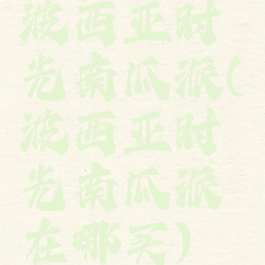 波西亚时
光南瓜派(
波西亚时
光南瓜派
在哪买)